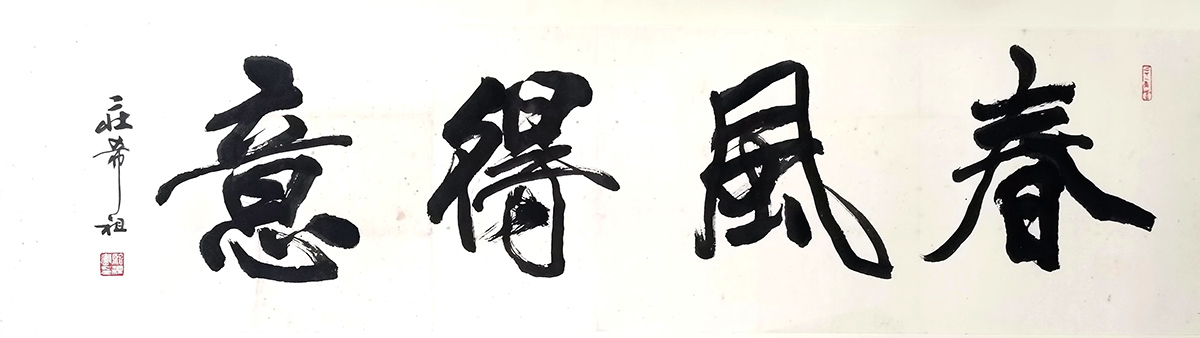 春風得意
莊希祖